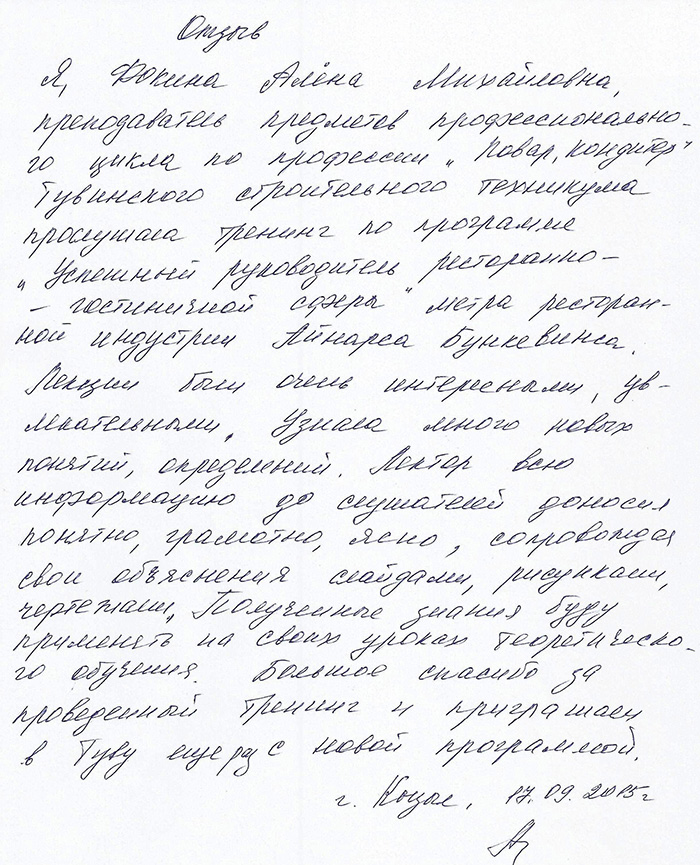 Отзыв
Я, Фокина Алёна Михайловна,
преподаватель предметов профессионально-
го цикла по профессии „Повар, кондитер"
Тувинского строительного техникума
прослушала тренинг по программе
„Успешный руководитель ресторанно-
- гостиничной сферы" метра ресторан-
ной индустрии Айнарса Бункевинса.
Лекции были очень интересными, ув-
лекательными. Узнала много новых
понятий, определений. Лектор всю
информацию до слушателей доносил
понятно, грамотно, ясно, сопровождая
свои объяснения слайдами, рисунками,
чертежами. Полученные знания буду
применять на своих уроках теоретическо-
го обучения. Большое спасибо за
проведенный тренинг и приглашаем
в Туву еще раз с новой программой.
г. Кызыл, 17.09.2015г